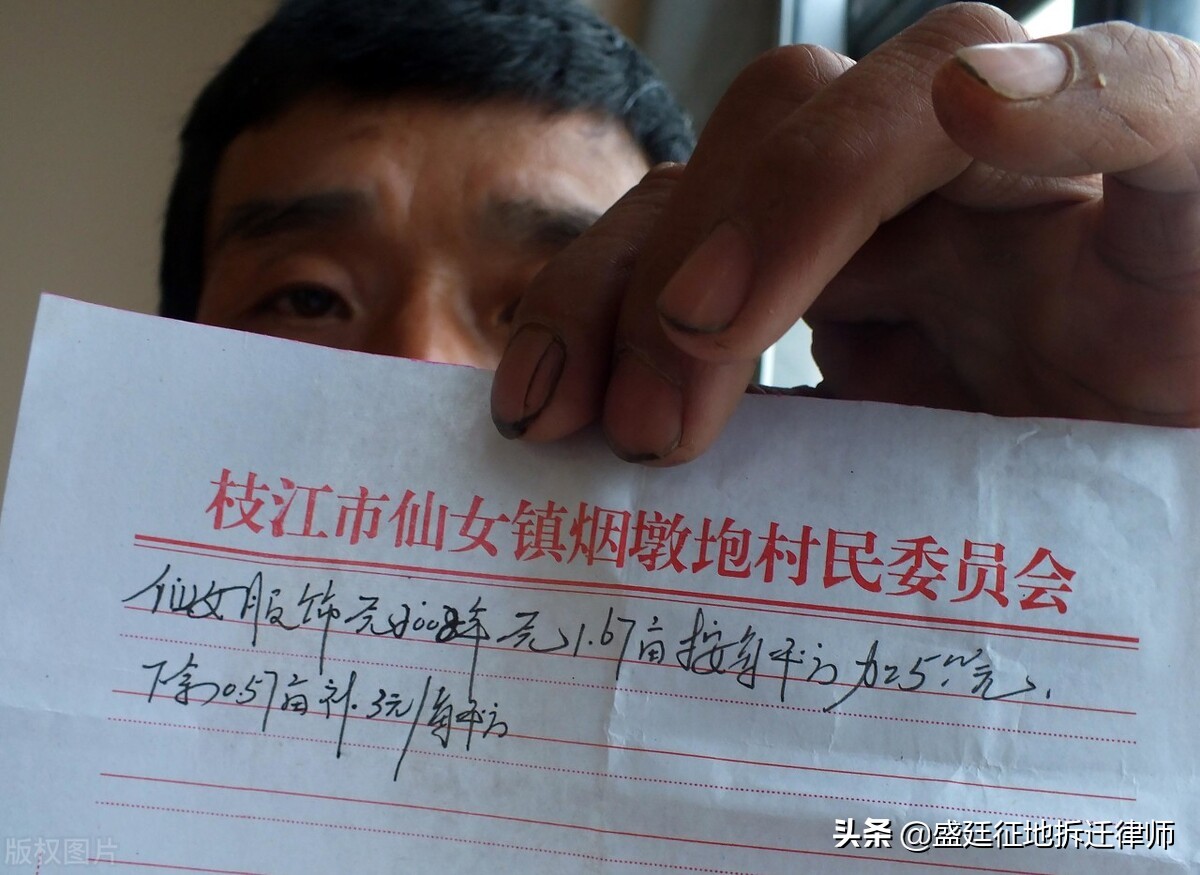 枝江市仙女镇烟墩垉村民委员会
仙女服饰元2008年元1.67亩按每平方加25.00元.
下余0.57亩补.3元/每平方
版权图片
头条 @盛廷征地拆迁律师